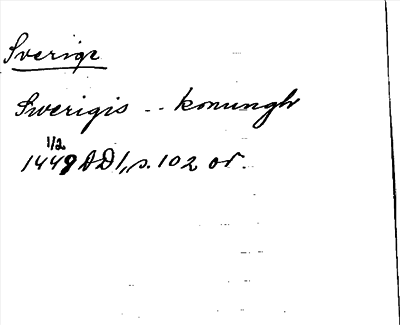 Sverige
Swerigis .. konungh
1/2
1449 ADI, s. 102 or.